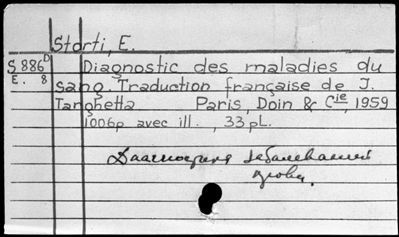 Storti, E.
S 886D Diagnostic des maladies du
E. 8 sang. Traduction française de J.
Tanghetta Paris, Doin & Cie, 1959
1006p avec ill., 33 pL.
Диагностика заболеваний
крови.